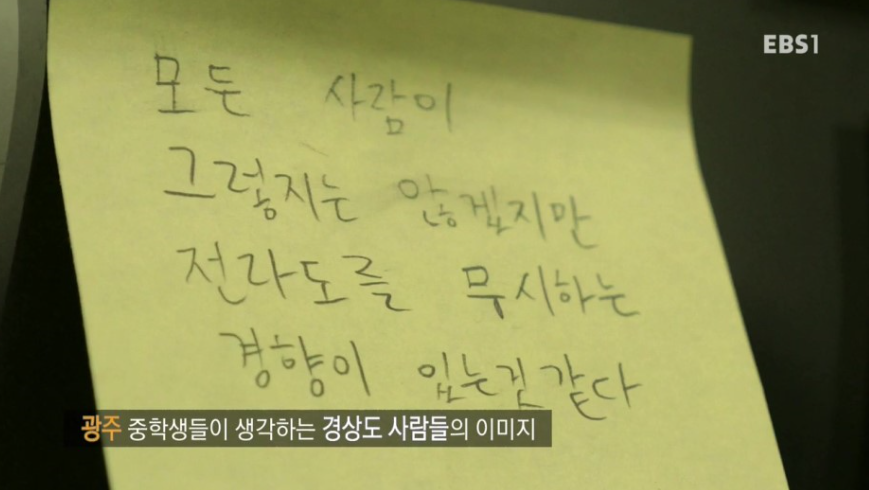 EBS1
모든 사람이
그렇지는 않겠지만
전라도를 무시하는
경향이 있는것같다
광주 중학생들이 생각하는 경상도 사람들의 이미지